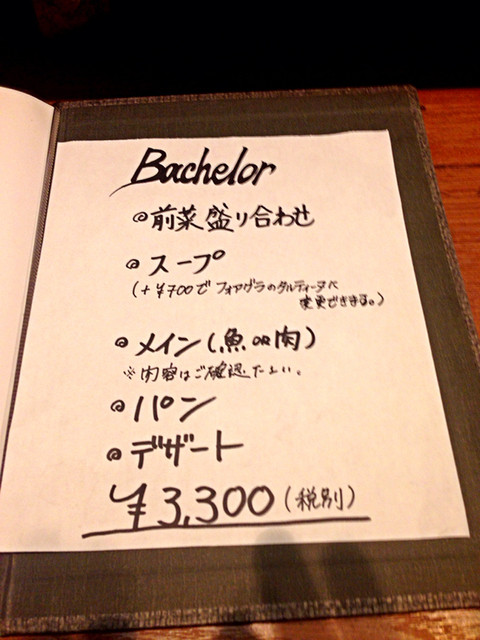 Bachelor
◎前菜盛り合わせ
◎スープ
(+¥700でフォアグラのタルティーヌへ
変更できます。)
◎メイン(魚or肉)
※内容はご確認下さい。
◎パン
◎デザート
¥3,300(税別)